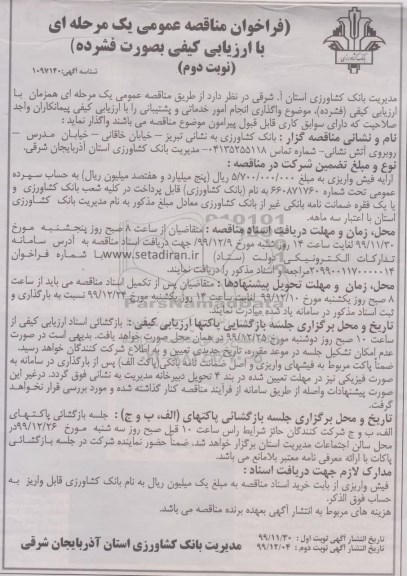 (فراخوان مناقصه عمومی یک مرحله ای
با ارزیابی کیفی بصورت فشرده)
(نوبت دوم)
شناسه آگهی: ۱۰۹۷۱۴۰
مدیریت بانک کشاورزی استان آ. شرقی در نظر دارد از طریق مناقصه عمومی یک مرحله ای همزمان با
ارزیابی کیفی (فشرده)، موضوع واگذاری انجام امور خدماتی و پشتیبانی را با ارزیابی کیفی پیمانکاران واجد
صلاحیت که دارای سوابق کاری قابل قبول پیرامون موضوع مناقصه می باشند واگذار نماید:
نام و نشانی مناقصه گزار: بانک کشاورزی به نشانی تبریز - خیابان خاقانی - خیابان مدرس -
روبروی آتش نشانی- شماره تماس ۰۴۱۳۵۲۵۵۱۱۸- مدیریت بانک کشاورزی استان آذربایجان شرقی.
نوع و مبلغ تضمین شرکت در مناقصه:
ارایه فیش واریزی به مبلغ ۵/۷۰۰/۰۰۰/۰۰۰ ریال (پنج میلیارد و هفتصد میلیون ریال) به حساب سپرده
عمومی تحت شماره ۶۶۰۸۲۱۷۶۰ به نام (بانک کشاورزی) قابل پرداخت در کلیه شعب بانک کشاورزی و
یا یک فقره ضمانت نامه بانکی غیر از بانک کشاورزی معادل مبلغ مذکور به نام مدیریت بانک کشاورزی
استان با اعتبار سه ماهه.
محل، زمان و مهلت دریافت اسناد مناقصه: متقاضیان از ساعت ۸ صبح روز پنجشنبه مورخ
۹۹/۱۱/۳۰ لغایت ساعت ۱۴ روز شنبه مورخ ۹۹/۱۲/۹ جهت دریافت اسناد مناقصه به آدرس سامانه
تدارکات الکترونیکی دولت (ستاد) www.setadiran.ir با شماره فراخوان
۲۰۹۹۰۰۱۱۷۰۰۰۰۱۴ مراجعه و اسناد مذکور را دریافت نمایند.
محل، زمان و مهلت تحویل پیشنهادها: متقاضیان پس از تکمیل اسناد مناقصه می باید از ساعت
۸ صبح روز یکشنبه مورخ ۹۹/۱۲/۱۰ لغایت ساعت ۱۴ روز یکشنبه مورخ ۹۹/۱۲/۲۴ نسبت به بارگذاری و
ثبت اسناد مذکور در سامانه یاد شده مبادرت نمایند.
تاریخ و محل برگزاری جلسه بازگشایی پاکتها ارزیابی کیفی: بازگشائی اسناد ارزیابی کیفی از
ساعت ۱۰ صبح روز دوشنبه مورخ ۹۹/۱۲/۲۵ در همان محل صورت خواهد یافت. بدیهی است در صورت
عدم امکان تشکیل جلسه در موعد مقرره، تاریخ جدیدی تعیین و به اطلاع شرکت کنندگان خواهد رسید.
ضمناً پاکت مربوط به فیشهای واریزی و اصل ضمانت نامه بانکی (پاکت الف) پس از بارگذاری در سامانه به
صورت فیزیکی نیز در مهلت تعیین شده در بند ۴ تحویل دبیرخانه مدیریت به نشانی فوق گردد. درغیر این
صورت پیشنهادات واصله از طریق سامانه از فرآیند مناقصه کنار گذاشته شده و مورد بررسی قرار نخواهد
گرفت.
تاریخ و محل برگزاری جلسه بازگشائی پاکتهای (الف، ب و ج): جلسه بازگشائی پاکتهای
الف، ب و ج شرکت کنندگان حائز شرایط راس ساعت ۱۰ قبل صبح روز سه شنبه مورخ ۹۹/۱۲/۲۶ در
محل سالن اجتماعات مدیریت استان برگزار خواهد شد. ضمناً حضور نماینده شرکت در جلسه بازگشائی
پاکات با ارائه معرفی نامه معتبر بلامانع می باشد.
مدارک لازم جهت دریافت اسناد:
فیش واریزی از بابت خرید اسناد مناقصه به مبلغ یک میلیون ریال به نام بانک کشاورزی قابل واریز به
حساب فوق الذکر.
هزینه های مربوط به انتشار آگهی بعهده برنده مناقصه می باشد.
تاریخ انتشار آگهی نوبت اول: ۹۹/۱۱/۳۰
تاریخ انتشار آگهی نوبت دوم: ۹۹/۱۲/۰۴
مدیریت بانک کشاورزی استان آذربایجان شرقی